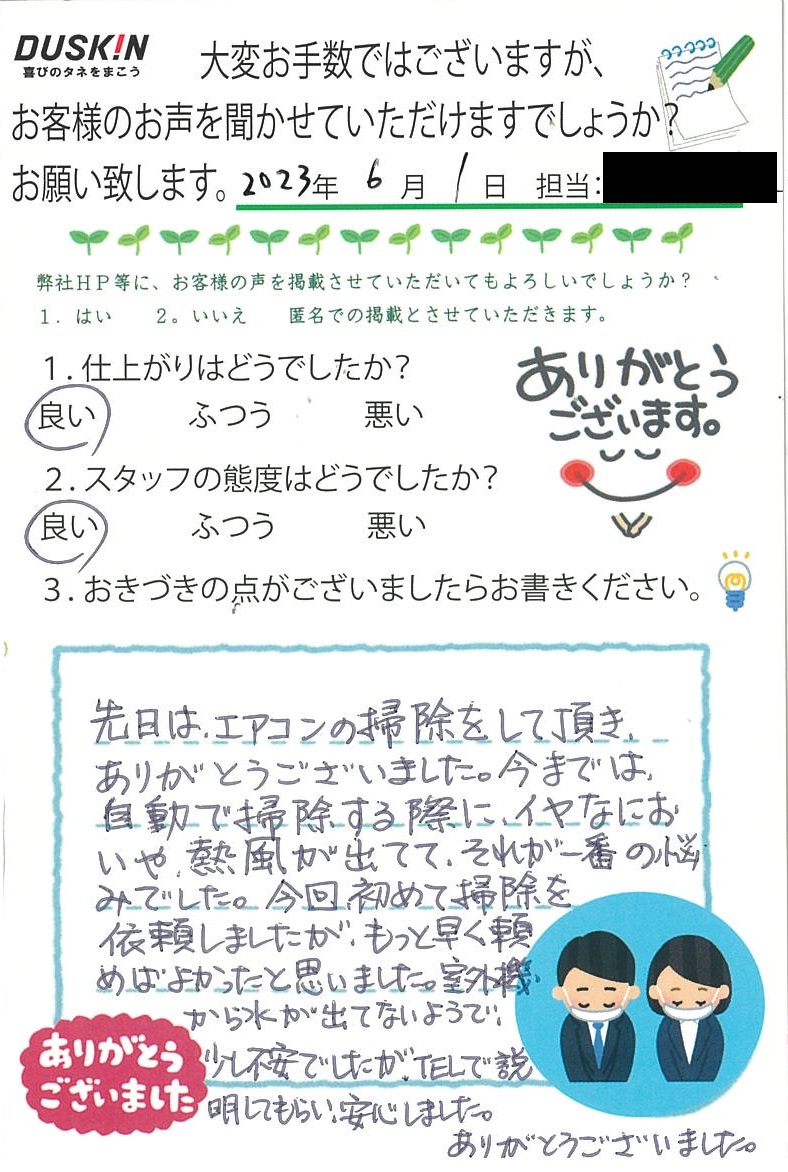 DUSKIN
喜びのタネをまこう
大変お手数ではございますが、
お客様のお声を聞かせていただけますでしょうか?
お願い致します。2023年 6月 1日 担当:
弊社HP等に、お客様の声を掲載させていただいてもよろしいでしょうか?
1. はい 2。いいえ 匿名での掲載とさせていただきます。
1. 仕上がりはどうでしたか?
良い ふつう 悪い
ありがとう
ございます。
2. スタッフの態度はどうでしたか?
良い ふつう 悪い
3. おきづきの点がございましたらお書きください。
先日は、エアコンの掃除をして頂き、
ありがとうございました。今までは、
自動で掃除する際に、イヤなにお
いや、熱風が出てて、それが一番の悩
みでした。今回、初めて掃除を
依頼しましたが、もっと早く頼
めばよかったと思いました。室外機
から水が出てないようで、
少し不安でしたが、TELで説
明してもらい、安心しました。
ありがとうございました。
ありがとう
ございました